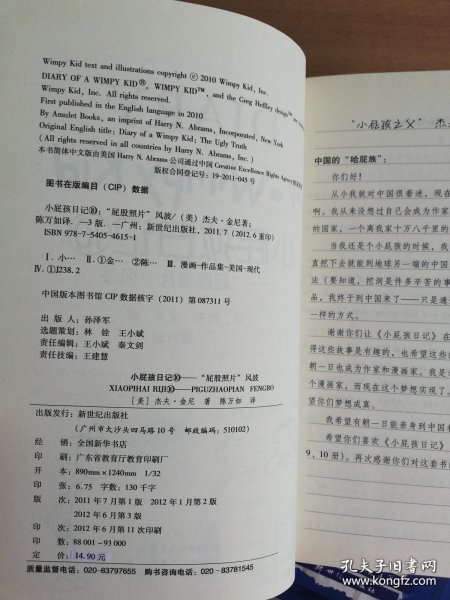 Wimpy Kid text and illustrations copyright © 2010 Wimpy Kid, Inc.
DIARY OF A WIMPY KID®, WIMPY KID™, and the Greg Heffley design™
Wimpy Kid, Inc. All rights reserved.
First published in the English language in 2010
By Amulet Books, an imprint of Harry N. Abrams, Incorporated, New York
Original English title: Diary of a Wimpy Kid: The Ugly Truth
(All rights reserved in all countries by Harry N. Abrams, Inc.)
本书简体中文版由美国 Harry N. Abrams 公司通过中国 Creative Excellence Rights Agency
版权合同登记号：19-2011-045号
图书在版编目（CIP）数据
小屁孩日记⑩：“屁股照片”风波/（美）杰夫·金尼著；
陈万如译. —3版. —广州：新世纪出版社，2011.7（2012.6重印）
ISBN 978-7-5405-4615-1
Ⅰ.小… Ⅱ.①金… ②陈… Ⅲ.漫画-作品集-美国-现代
Ⅳ.①J238.2
中国版本图书馆 CIP 数据核字（2011）第 087311 号
出 版 人：孙泽军
选题策划：林 铨 王小斌
责任编辑：王小斌 秦文剑
责任技编：王建慧
小屁孩日记⑩——“屁股照片”风波
XIAOPIHAI RIJI⑩——PIGUZHAOPIAN FENGBO
［美］杰夫·金尼 著 陈万如 译
出版发行：新世纪出版社
（广州市大沙头四马路10号 邮政编码：510102）
经 销：全国新华书店
印 刷：广东省教育厅教育印刷厂
开 本：890mm×1240mm 1/32
印 张：6.75 字数：130千字
版 次：2011年7月第1版 2012年1月第2版
2012年6月第3版
印 次：2012年6月第11次印刷
印 数：88 001-93 000
定 价：14.90元
质量监督电话：020-83797655 购书咨询电话：020-83781545
“小屁孩之父”杰
中国的“哈屁族”：
你们好！
从小我就对中国很着迷，现在
啊。我从来没想过自己会成为作家
的国家，一个离我家十万八千里的
当我还是个小屁孩的时候，我
直挖下去就能到地球另一端的中国
法（要知道，挖洞是件多辛苦的事
品，我终于到中国来了——只是通
一样的方式。
谢谢你们让《小屁孩日记》在
得这些故事是有趣的，也希望这些
朝一日也成为作家和漫画家。我是
个漫画家，而现在这个梦想实现了。
望你们梦想成真。
我希望有朝一日能亲身到中国
希望你们喜欢《小屁孩日记》
9、10册）。再次感谢你们对这套书
孔夫子旧书网